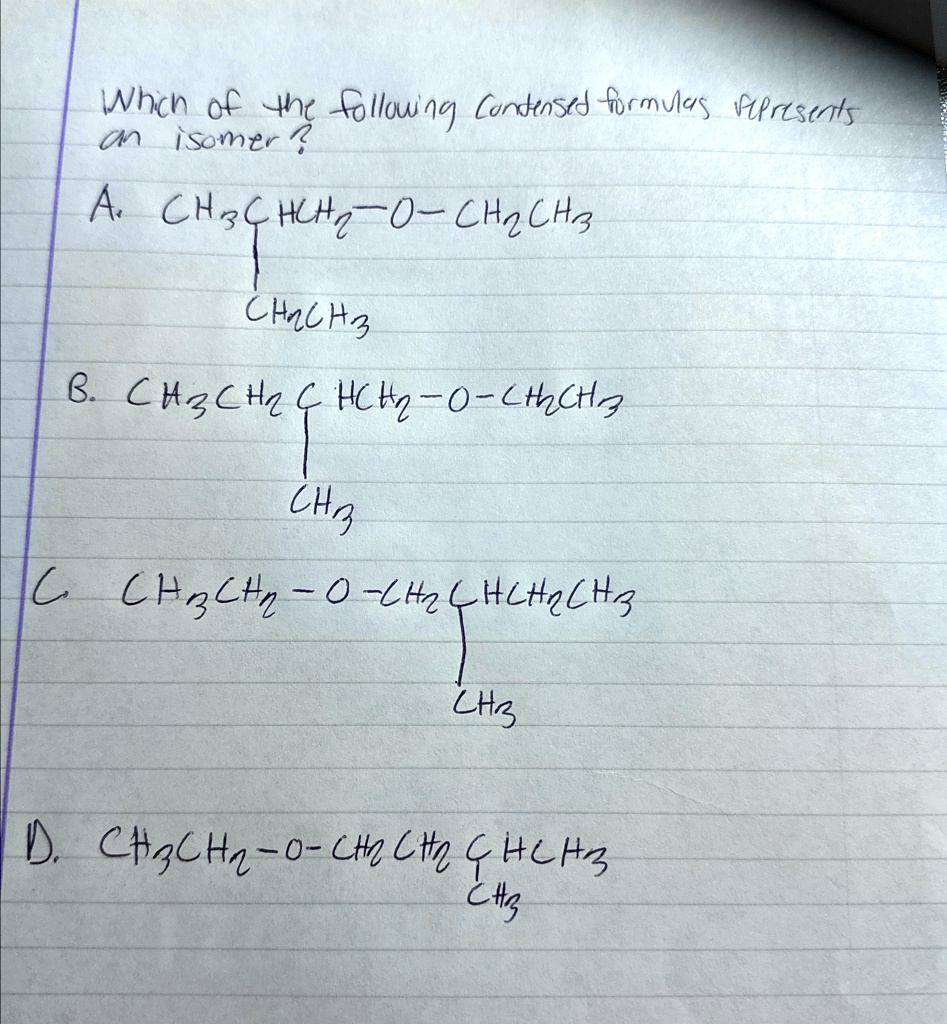 Which of the following Condensed formulas represents
an isomer?
A. CH3CHCH2-O-CH2CH3
CH2CH3
B. CH3CH2CHCH2-O-CH2CH3
CH3
C. CH3CH2-O-CH2CHCH2CH3
CH3
D. CH3CH2-O-CH2CH2CHCH3
CH3